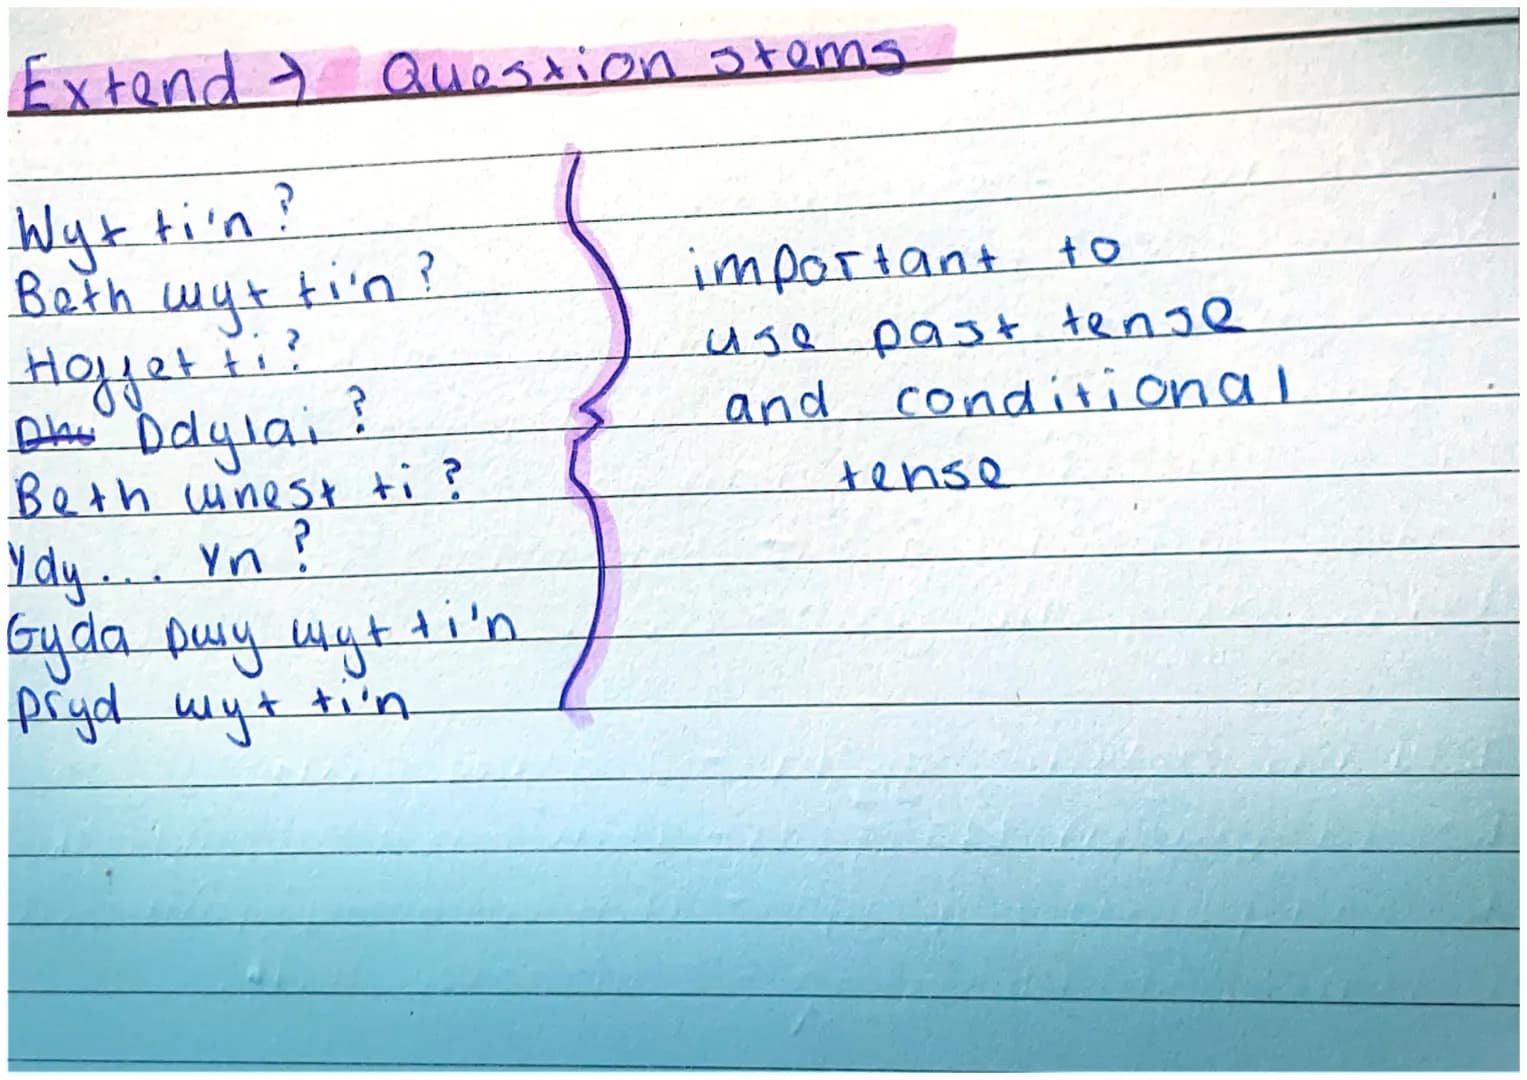 Extend → Question stems
Wyt ti'n?
Beth wyt ti'n?
Hoffet ti?
Ddylai?
Beth wnest ti?
Ydy... Yn?
Gyda pwy wyt ti'n
Pryd wyt ti'n
important to
use past tense
and conditional
tense